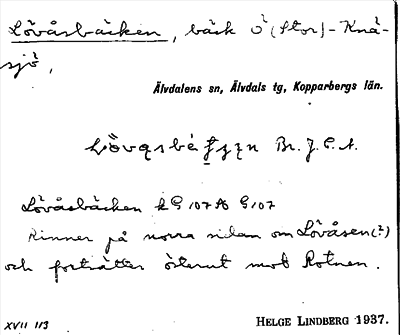 Lövåsbäcken, bäck ö (Stor)-Knä-
sjö,
Älvdalens sn, Älvdals tg, Kopparbergs län.
Br. J. E. A.
Lövåsbäcken kG 107 A G 107
Rinner på norra sidan om Lövåsen(?)
och fortsätter österut mot Rotnen.
XVII 113
HELGE LINDBERG 1937.